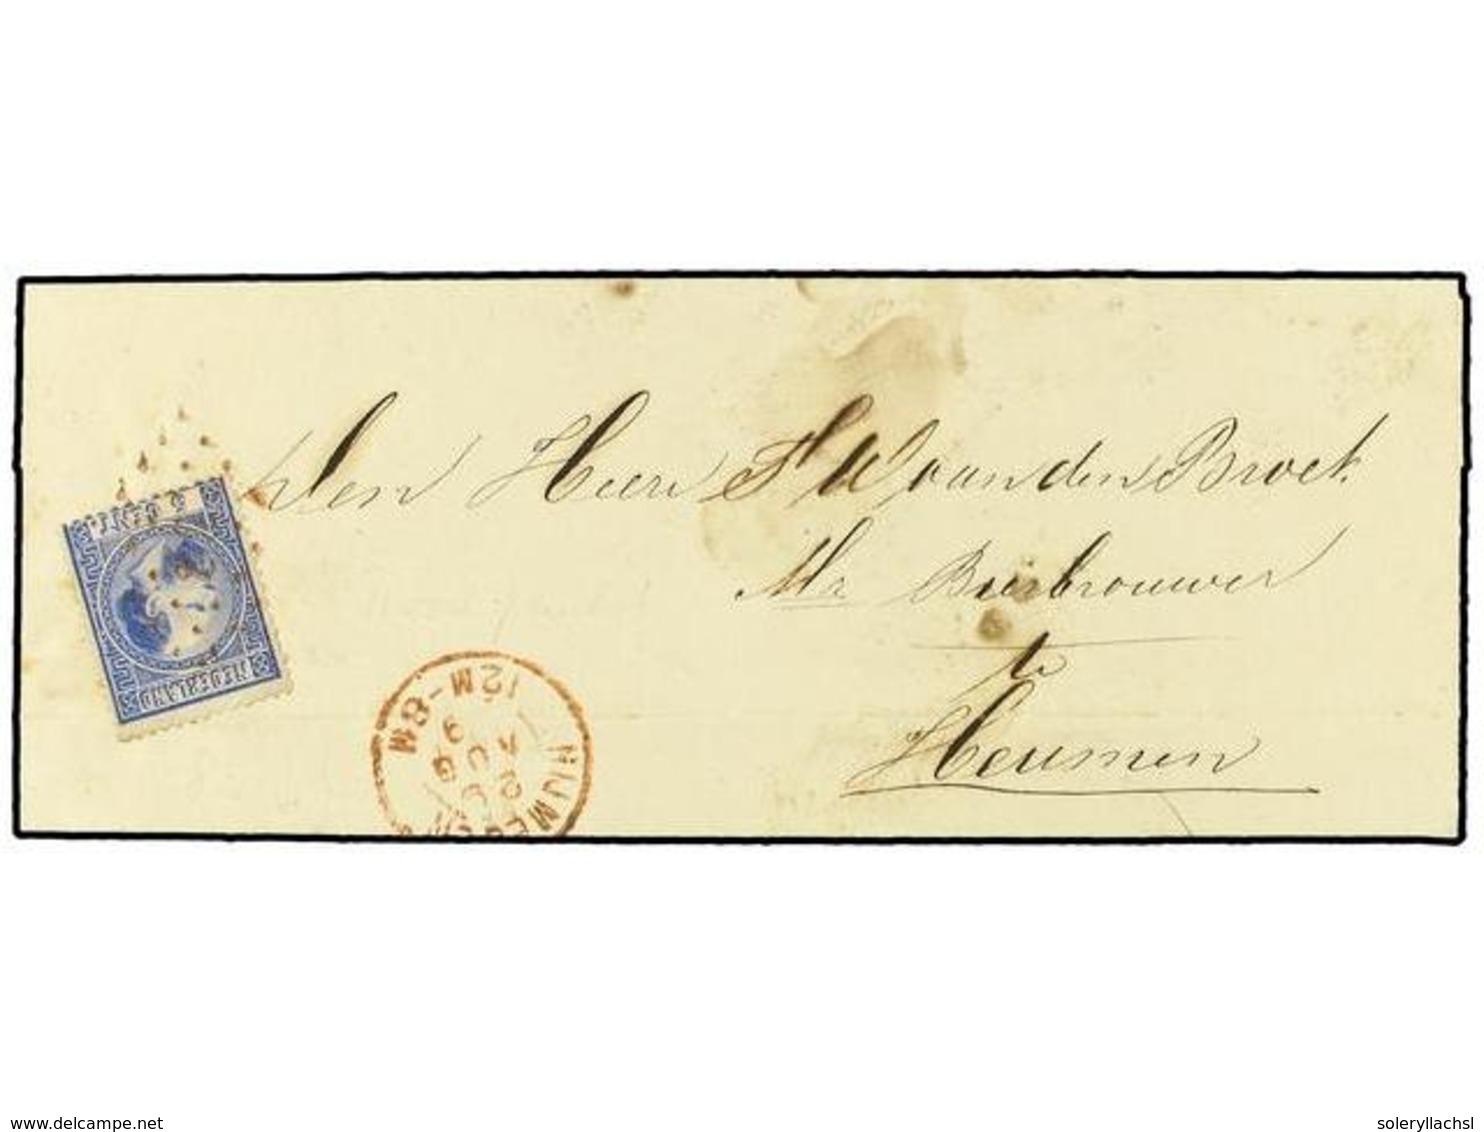 Den Heer H W van den Broek
Mr Bierbrouwer
te
Heumen
5 CENT.
NEDERLAND
NIJMEGEN
12M-8M
© www.delcampe.net
soleryllachsl